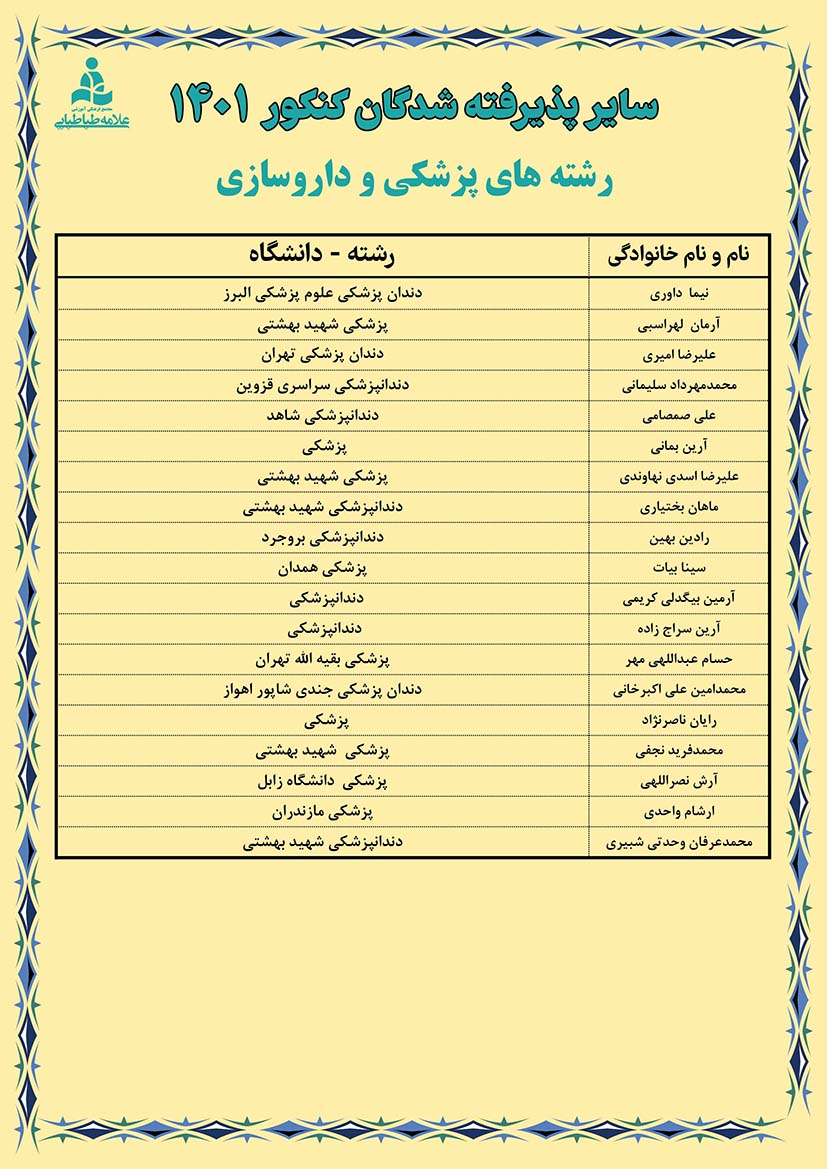 مجتمع فرهنگی آموزشی
علامه طباطبایی
سایر پذیرفته شدگان کنکور ۱۴۰۱
رشته های پزشکی و داروسازی
نام و نام خانوادگی رشته - دانشگاه
نیما داوری دندان پزشکی علوم پزشکی البرز
آرمان لهراسبی پزشکی شهید بهشتی
علیرضا امیری دندان پزشکی تهران
محمدمهرداد سلیمانی دندانپزشکی سراسری قزوین
علی صمصامی دندانپزشکی شاهد
آرین بمانی پزشکی
علیرضا اسدی نهاوندی پزشکی شهید بهشتی
ماهان بختیاری دندانپزشکی شهید بهشتی
رادین بهین دندانپزشکی بروجرد
سینا بیات پزشکی همدان
آرمین بیگدلی کریمی دندانپزشکی
آرین سراج زاده دندانپزشکی
حسام عبداللهی مهر پزشکی بقیه الله تهران
محمدامین علی اکبرخانی دندان پزشکی جندی شاپور اهواز
رایان ناصرنژاد پزشکی
محمدفرید نجفی پزشکی شهید بهشتی
آرش نصراللهی پزشکی دانشگاه زابل
ارشام واحدی پزشکی مازندران
محمدعرفان وحدتی شبیری دندانپزشکی شهید بهشتی